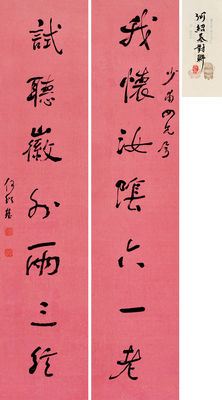 何紹基對聯
我懷汝陰六一老
四兄
試聽徽外兩三絃
何紹基